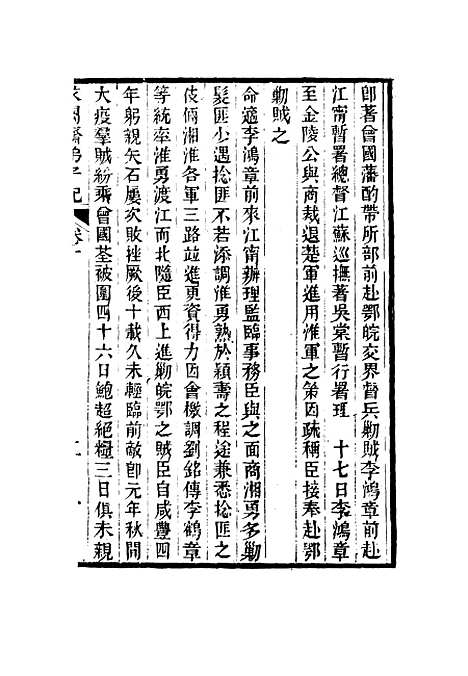 卽著曾國藩酌帶所部前赴鄂皖交界督兵勦賊李鴻章前赴
江甯暫署總督江蘇巡撫著吳棠暫行署理　十七日李鴻章
至金陵公與商裁退楚軍進用淮軍之策因疏稱臣接奉赴鄂
勦賊之
命適李鴻章前來江甯辦理監臨事務臣與之面商湘勇多勦
髮匪少遇捻匪不若添調淮勇熟於潁壽之程途兼悉捻匪之
伎倆湘淮各軍三路竝進更資得力因會檄調劉銘傳李鶴章
等統率淮勇渡江而北隨臣西上進勦皖鄂之賊臣自咸豐四
年躬親矢石屢次敗挫厥後十載久未輕臨前敵卽元年秋間
大疫羣賊紛乘曾國荃被圍四十六日鮑超絕糧三日俱未親
求闕齋弟子記 卷十